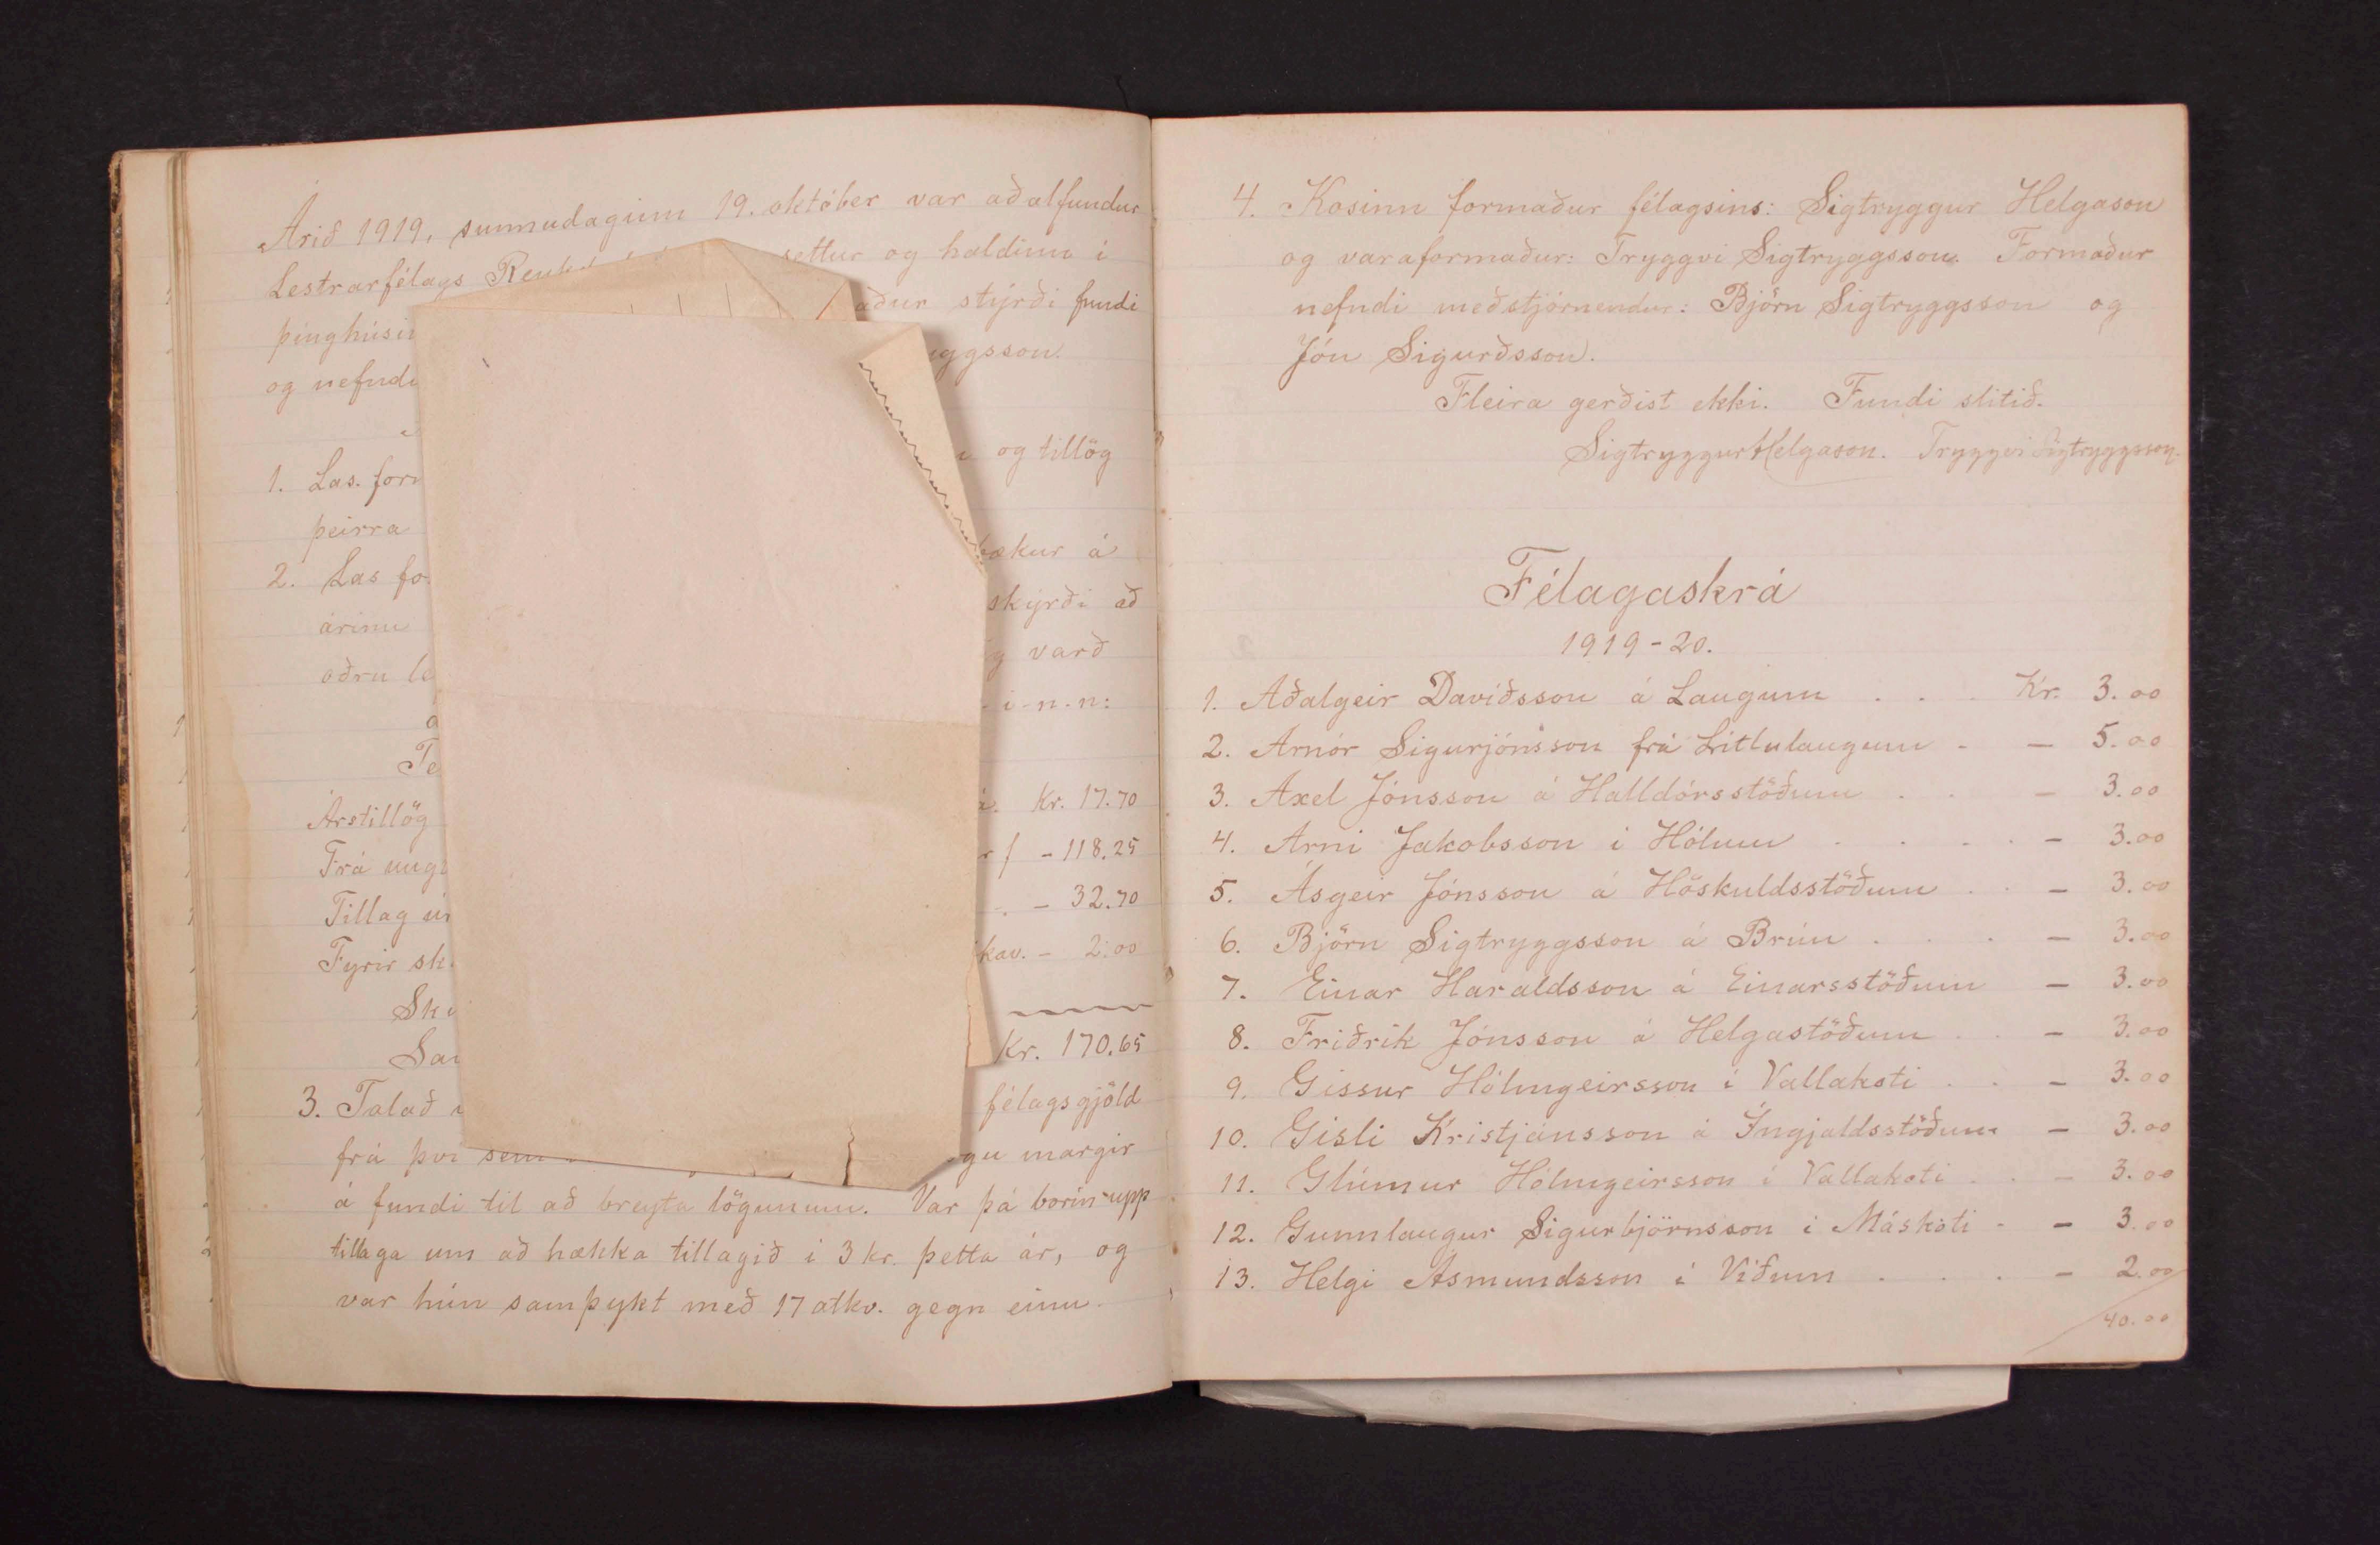 Árið 1919, sunnudaginn 19. október var aðalfundur
Lestrarfélags settur og haldinn í
aður stýrði fundi
og nefndi yggsson.
1. Las. og tillög
þeirra
2. Las bækur á
árinu skýrði að
öðru varð
i-n-n:
Kr. 17.70
Árstillög - 118.25
Frá
Tillag - 32.70
Fyrir kav. - 2.00
Kr. 170.65
3. Talað félagsgjöld
frá því sem margir
á fundi til að breyta lögunum. Var þá borin upp
tillaga um að hækka tillagið í 3 kr. þetta ár, og
var hún samþykt með 17 atkv. gegn einu.
4. Kosinn formaður félagsins: Sigtryggur Helgason
og varaformaður: Tryggvi Sigtryggsson. Formaður
nefndi meðstjórnendur: Björn Sigtryggsson og
Jón Sigurðsson.
Fleira gerðist ekki. Fundi slitið.
Sigtryggur Helgason. Tryggvi Sigtryggsson.
Félagaskrá
1919-20.
1. Aðalgeir Davíðsson á Laugum . . . Kr. 3.00
2. Arnór Sigurjónsson frá Litlulaugum - — 5.00
3. Axel Jónsson á Halldórsstöðum . . — 3.00
4. Árni Jakobsson í Hólum . . . . — 3.00
5. Ásgeir Jónsson á Höskuldsstöðum . . — 3.00
6. Björn Sigtryggsson á Brún . . . — 3.00
7. Einar Haraldsson á Einarsstöðum — 3.00
8. Friðrik Jónsson á Helgastöðum . . — 3.00
9. Gissur Hólmgeirsson í Vallakoti . . — 3.00
10. Gísli Kristjánsson á Ingjaldsstöðum — 3.00
11. Glúmur Hólmgeirsson í Vallakoti . . — 3.00
12. Gunnlaugur Sigurbjörnsson í Máskoti - — 3.00
13. Helgi Ásmundsson í Víðum . . . — 2.00
40.00